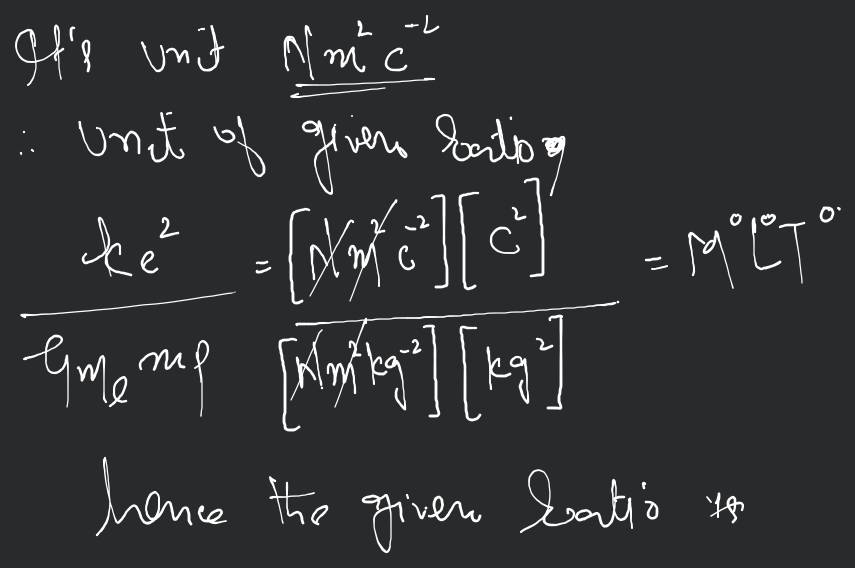 It's unit Nm²C⁻²
∴ Unit of given ratio,
ke² / Gmₑmp = [Nm²C⁻²][C²] / [Nm²kg⁻²][kg²] = M⁰L⁰T⁰.
hence the given ratio is